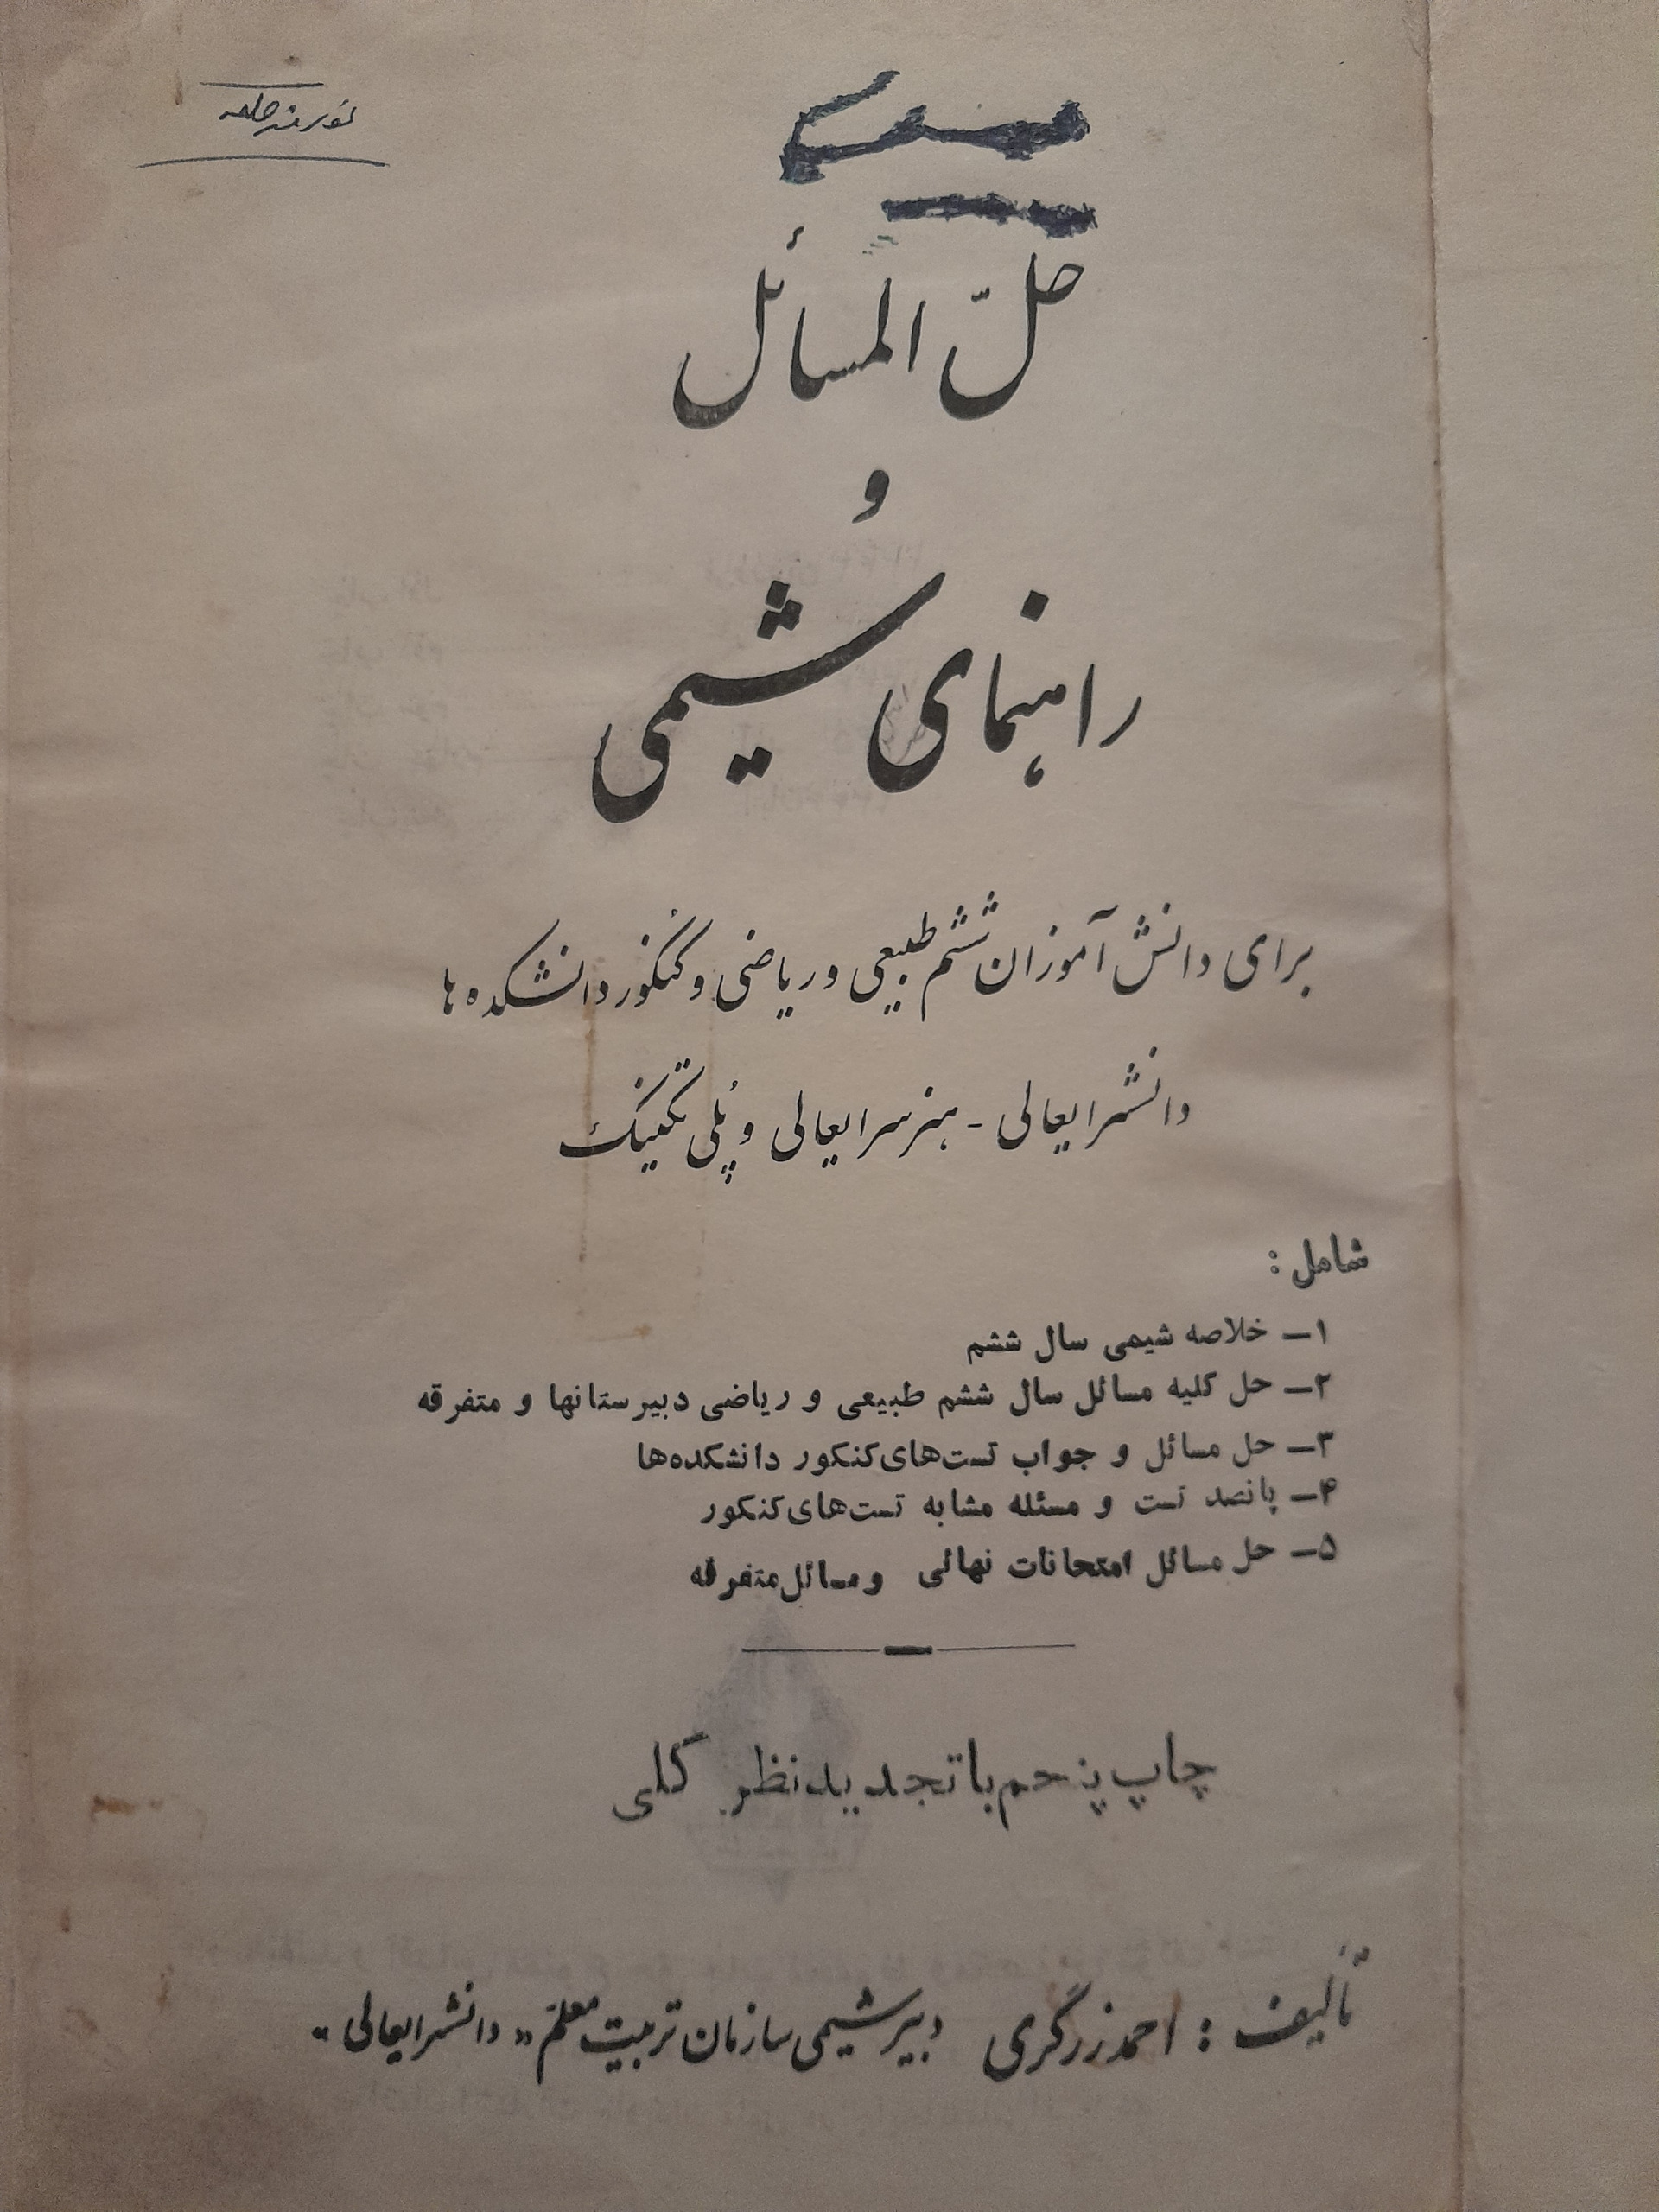 حلّ المسائل
و
راهنمای شیمی
برای دانش آموزان ششم طبیعی و ریاضی و کنکور دانشکده ها
دانشسرایعالی - هنرسرایعالی و پُلی تکنیک
شامل :
۱ـ خلاصه شیمی سال ششم
۲ـ حل کلیه مسائل سال ششم طبیعی و ریاضی دبیرستانها و متفرقه
۳ـ حل مسائل و جواب تست‌های کنکور دانشکده‌ها
۴ـ پانصد تست و مسئله مشابه تست‌های کنکور
۵ـ حل مسائل امتحانات نهائی و مسائل متفرقه
چاپ پنجم با تجدید نظر کلی
تألیف : احمد زرگری دبیر شیمی سازمان تربیت معلم « دانشسرایعالی »